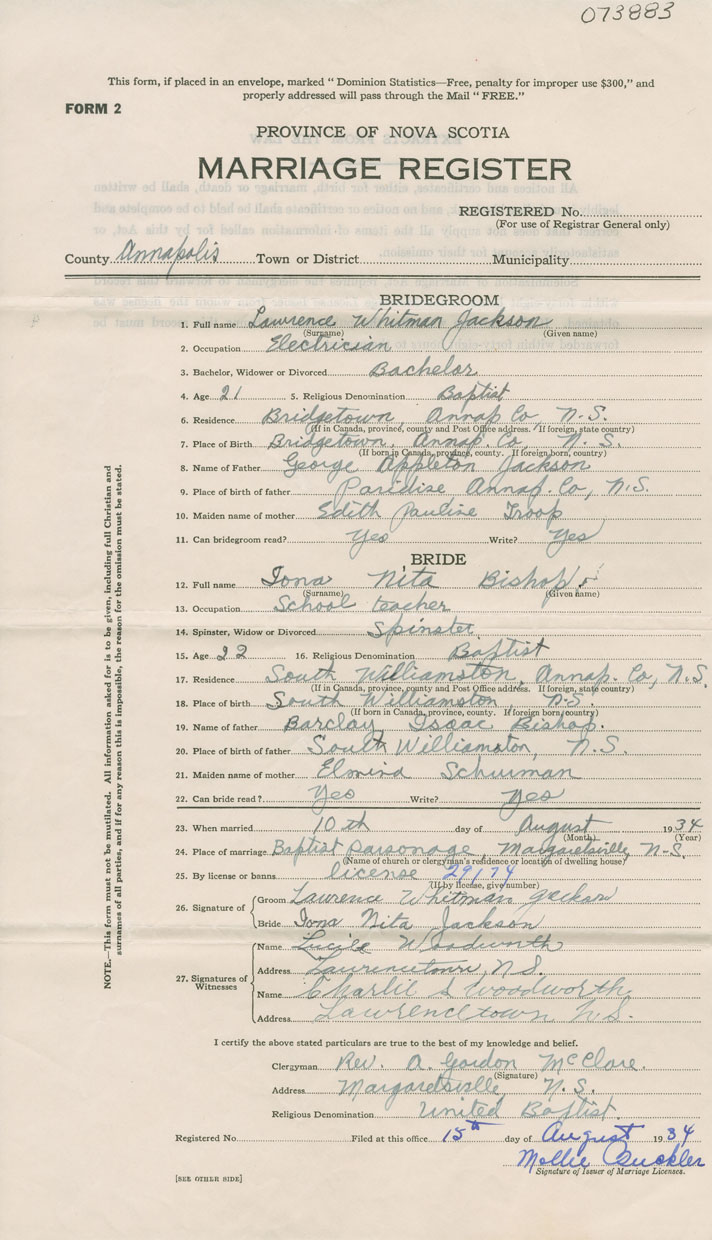 073883
This form, if placed in an envelope, marked " Dominion Statistics—Free, penalty for improper use $300," and
properly addressed will pass through the Mail " FREE."
FORM 2
PROVINCE OF NOVA SCOTIA
MARRIAGE REGISTER
REGISTERED No.
(For use of Registrar General only)
County Annapolis Town or District Municipality
BRIDEGROOM
1. Full name Lawrence Whitman Jackson
(Surname) (Given name)
2. Occupation Electrician
3. Bachelor, Widower or Divorced Bachelor
4. Age 21 5. Religious Denomination Baptist
6. Residence Bridgetown, Annap. Co, N.S.
(If in Canada, province, county and Post Office address. If foreign, state country)
7. Place of Birth Bridgetown, Annap. Co, N.S.
(If born in Canada, province, county. If foreign born, country)
8. Name of Father George Appleton Jackson
9. Place of birth of father Paridise, Annap. Co, N.S.
10. Maiden name of mother Edith Pauline Troop
11. Can bridegroom read? Yes Write? Yes
BRIDE
12. Full name Iona Nita Bishop
(Surname) (Given name)
13. Occupation School teacher
14. Spinster, Widow or Divorced Spinster
15. Age 22 16. Religious Denomination Baptist
17. Residence South Williamston, Annap. Co, N.S.
(If in Canada, province, county and Post Office address. If foreign, state country)
18. Place of Birth South Williamston, N.S.
(If born in Canada, province, county. If foreign born, country)
19. Name of father Barclay Isaac Bishop.
20. Place of birth of father South Williamston, N.S.
21. Maiden name of mother Elmira Schurman
22. Can bride read? Yes Write? Yes
23. When married 10th day of August 1934
(Month) (Year)
24. Place of marriage Baptist Parsonage, Margaretsville, N-S.
(Name of church or clergyman's residence or location of dwelling house)
25. By license or banns license 29174
(If by license, give number)
26. Signature of
Groom Lawrence Whitman Jackson
Bride Iona Nita Jackson
27. Signatures of Witnesses
Name Lucile Woodworth
Address Lawrencetown, N.S.
Name Charlie S Woodworth
Address Lawrencetown N.S.
I certify the above stated particulars are true to the best of my knowledge and belief.
Clergyman Rev. A. Gordon McClare.
(Signature)
Address Margaretsville, N.S.
Religious Denomination United Baptist.
Registered No. Filed at this office 15th day of August 1934
Mollie Buckler
Signature of Issuer of Marriage Licenses.
[SEE OTHER SIDE]
NOTE.—This form must not be mutilated. All information asked for is to be given, including full Christian and
surnames of all parties, and if for any reason this is impossible, the reason for the omission must be stated.